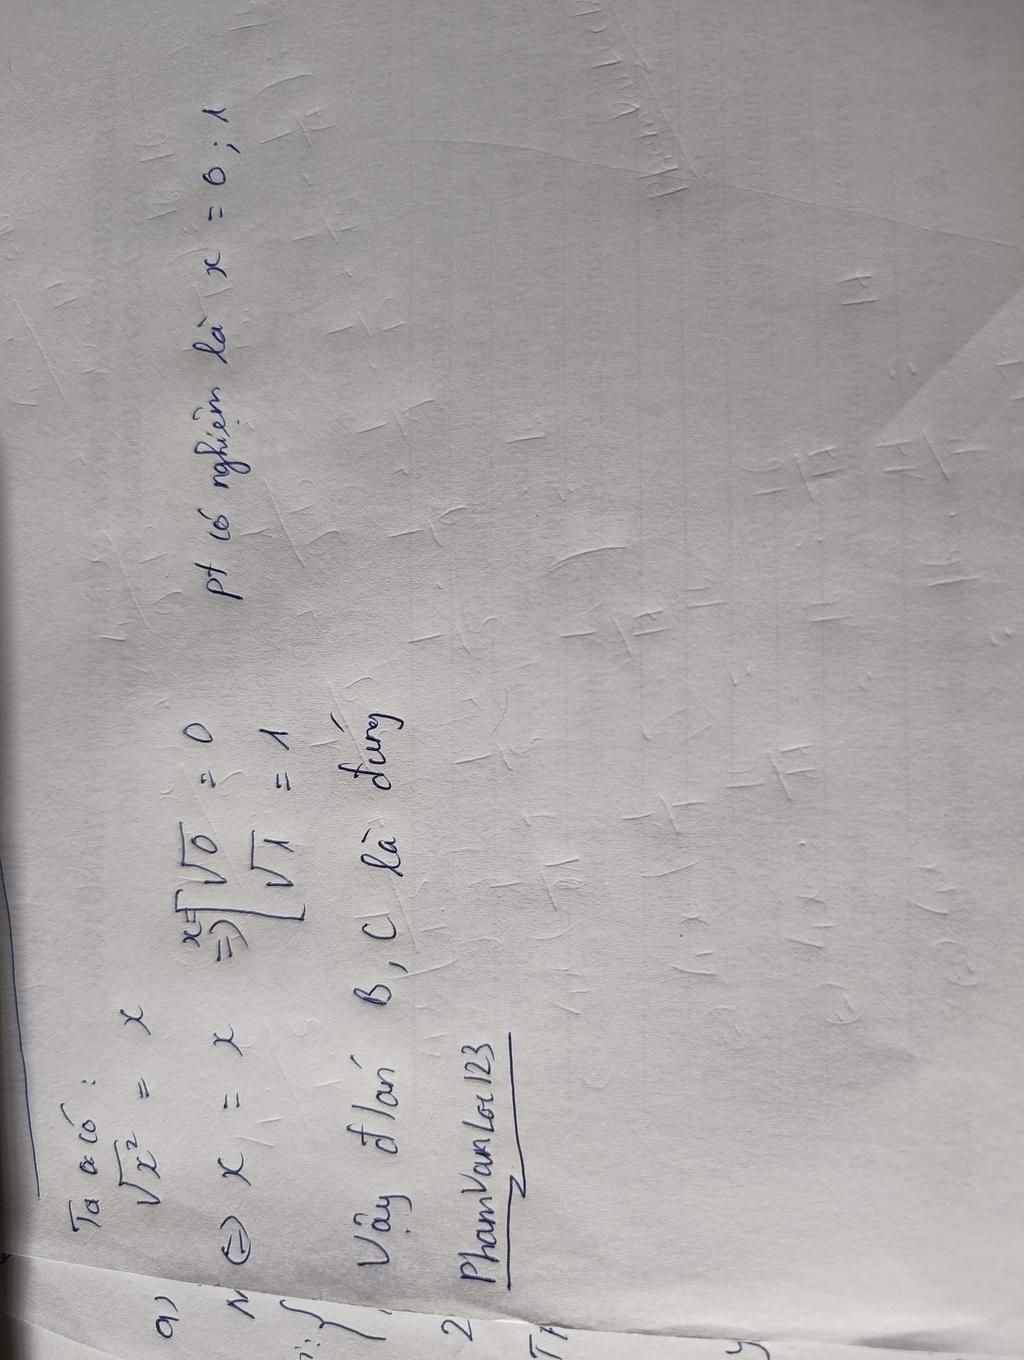 Ta có :
√x² = x
⇔ x = x ⇒ x = [ √0 = 0 pt có nghiệm là x = 0 ; 1
√1 = 1
Vậy đ/án B, C là đúng
PhamVanLoc123
a)
2